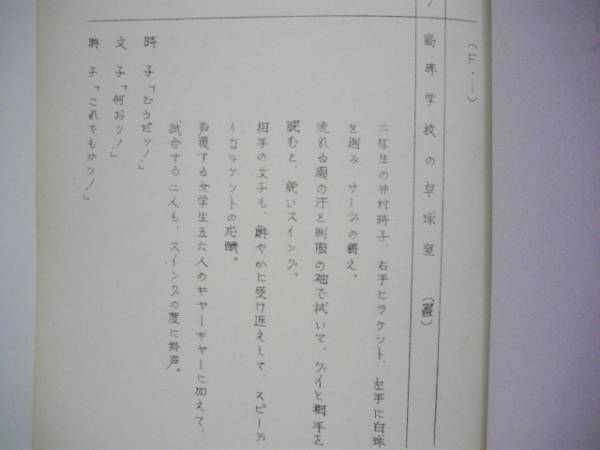 (F・I)
高等学校の卓球室 (晝)
二年生の井村時子、右手にラケット、左手に白球
を掴み、サーヴの構え。
流れる額の汗を制服の袖で拭いて、グイと相手を
睨むと、鋭いスイング。
相手の文子も、鮮やかに受け返えして、スピーデ
イなラケットの応酬。
声援する女学生五六人のキャーキャーに加えて、
試合する二人も、スイングの度に掛声。
時子「どうだッ!」
文子「何おッ!」
時子「これでもかッ!」